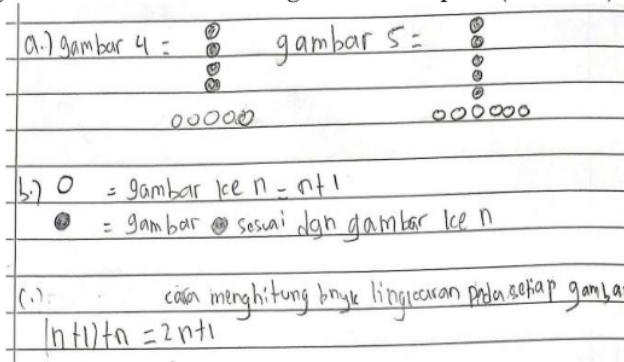 a.) gambar 4 = gambar 5 =
b.) O = gambar ke n = n+1
= gambar sesuai dgn gambar ke n
c.) cara menghitung bnyk lingkaran pada setiap gamba
(n+1)+n = 2n+1